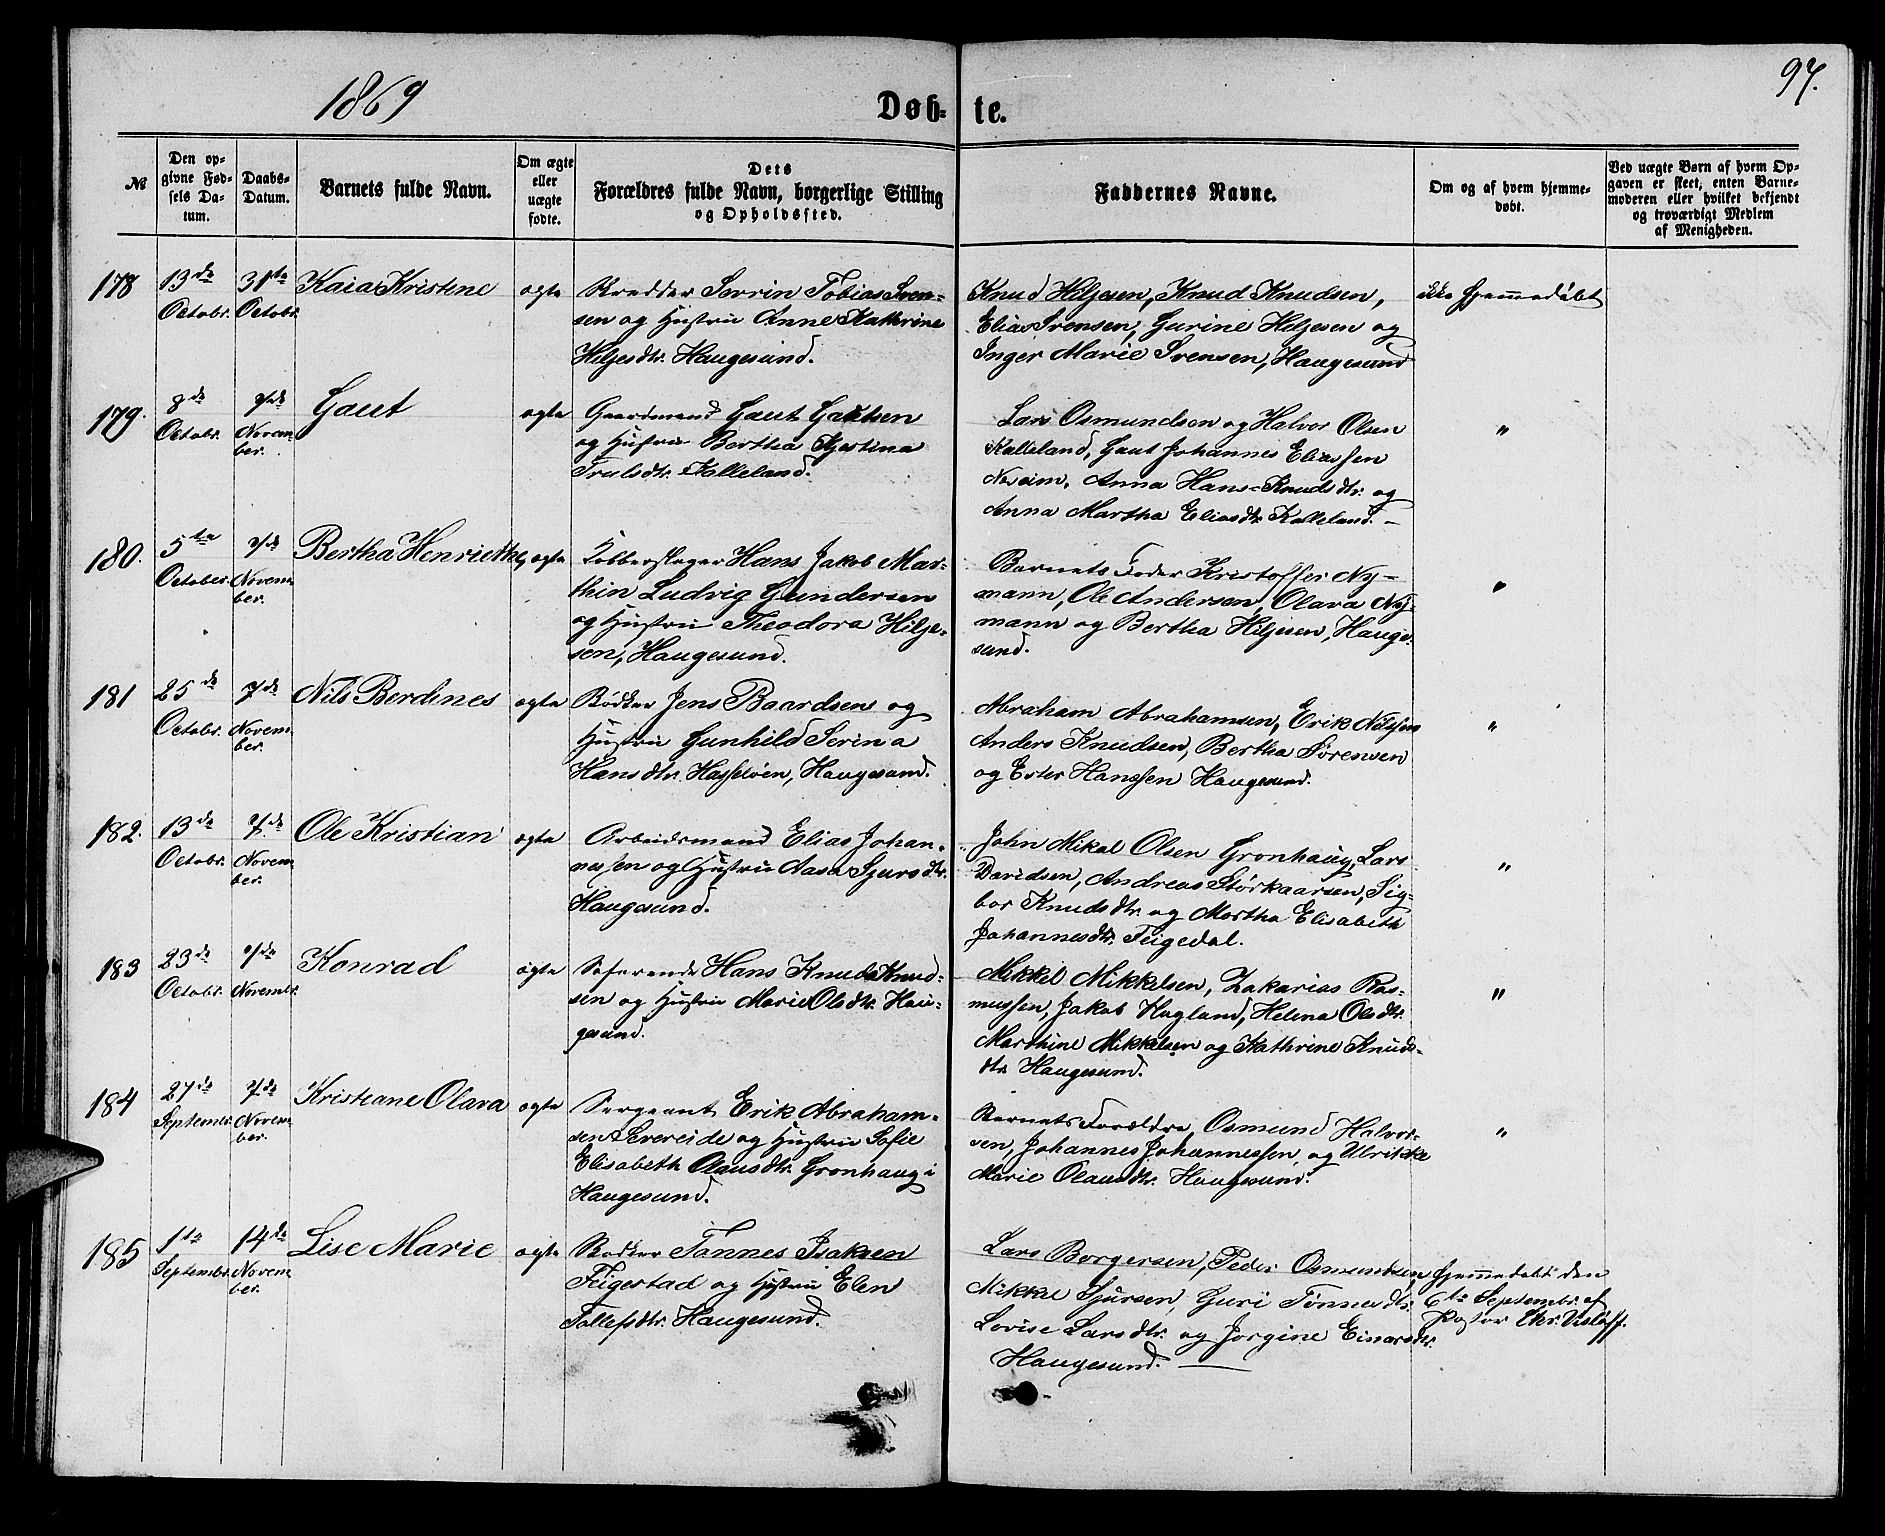 1869
Døb-
te.
97.
№
Den op-
givne Fød-
sels Da-
tum.
Daabs-
Datum.
Barnets fulde Navn.
Om ægte
eller
uægte
fødte.
Dets
Forældres fulde Navn, borgerlige Stilling
og Opholdssted.
Faddernes Navne.
Om og af hvem hjemme-
døbt.
Ved uægte Børn af hvem Op-
gaven er skeet, enten Barne-
moderen eller hvilket bekjendt
og troværdigt Medlem
af Menigheden.
178
13de
Octobr.
31te
Octobr.
Kaia Kristine
ægte
Skredder Serrin Tobias Sven-
sen og Hustru Anne Kathrine
Hiljesdtr. Haugesund.
Knud Hiljesen, Knud Knudsen,
Elias Svensen, Gurine Hiljesen og
Inger Marie Svensen, Haugesund
ikke hjemmedøbt
179.
8de
Octobr.
7de
Novem-
ber.
Gaut
ægte
Gaardmand Gaut Gautsen
og Hustru Bertha Kjestina
Trulsdtr. Kalleland.
Lars Osmundsen og Halvor Olsen
Kalleland, Gaut Johannes Eliassen
Anna Hans-Knudsdtr. og
Anna Martha Eliasdtr. Kalleland. –
"
180.
5te
October.
7de
Novem-
ber.
Bertha Henriethe,
ægte
Kobberslager Hans Jakob Mar-
thin Ludvig Gundersen
og Hustru Theodora Hilje-
sen, Haugesund.
Barnets Fader Kristoffer Ny-
mann, Ole Andersen, Olava Ny-
mann og Bertha Hiljesen, Hauge-
sund.
"
181
25de
Octobr.
7de
Novem-
ber.
Nils Berdines
ægte
Bødker Jens Baardsen og
Hustru Gunhild Serina
Hansdtr. Hasseløen, Haugesund.
Abraham Abrahamsen, Erik Nilssen
Anders Knudsen, Bertha Sørensen
og Ester Hanssen Haugesund.
"
182.
13de
Octobr.
7de
Novem-
ber.
Ole Kristian
ægte
Arbeidsmand Elias Johan-
nessen og Hustru Aasa Sjursdtr.
Haugesund.
John Mikal Olsen Gronhaug, Lars
Davidsen, Andreas Størkaarsen, Sig-
bor Knudsdtr. og Martha Elisabeth
Johannesdtr. Feigedal.
"
183
23de
Octobr.
7de
Novembr.
Konrad
ægte
Søfarende Hans Knuds Knud-
sen og Hustru Marie Olsdtr. Hau-
gesund.
Mikkel Mikkelsen, Zakarias Ras-
mussen, Jakob Hagland, Helena Olsdtr.
Marthine Mikkelsen og Kathrine Knuds-
dtr Haugesund.
"
184
27de
Septembr.
7de
Novem-
ber.
Kristiane Olava
ægte
Sergeant Erik Abraham-
sen Severeide og Hustru Sofie
Elisabeth Olausdtr. Gronhaug i
Haugesund.
Barnets Forældre, Osmund Halvor-
sen, Johannes Johannessen og Ulrikke
Marie Olausdtr. Haugesund.
"
185
1te
Septembr.
14de
Novem-
ber.
Lise Marie
ægte
Bødker Tønnes Isaksen
Feigestad og Hustru Elen
Tollefsdtr. Haugesund.
Lars Borgersen, Peder Osmundsen
Mikkel Sjursen, Guri Tønnesdtr.
Lovise Larsdtr. og Jorgine Einarsdtr.
Haugesund.
hjemmedøbt den
6te Septembr. af
Pastor Chr. Visløff.